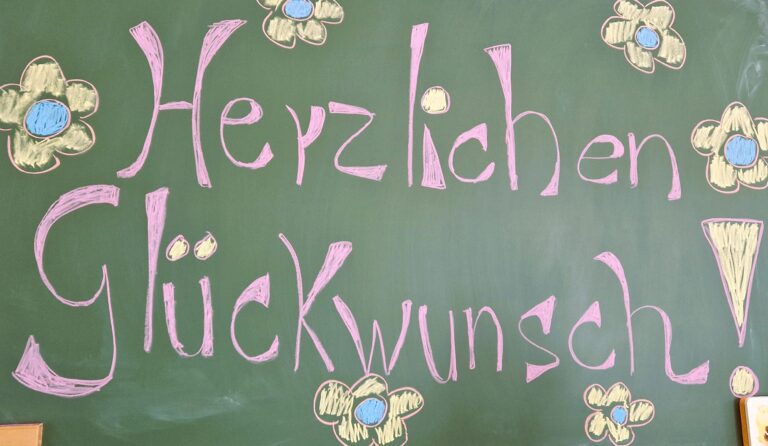 Herzlichen
Glückwunsch!